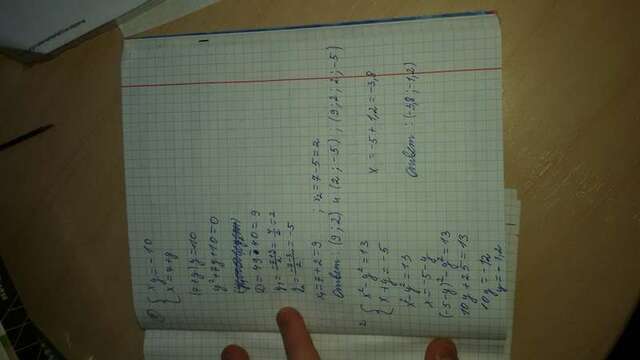 1) { xy = -10
x = 7+y
(7+y)y = -10
y² + 7y + 10 = 0
D = 49 - 40 = 9
y₁ = (-7+3)/2 = 2
y₂ = (-7-3)/2 = -5
x₁ = 7+2 = 9 ; x₂ = 7-5 = 2
Ответ: (9; 2) и (2; -5)
2 { x² - y² = 13
x + y = -5
x² - y² = 13
x = -5 - y
(-5-y)² - y² = 13
10y + 25 = 13
10y = -12
y = -1,2
x = -5 + 1,2 = -3,8
Ответ: (-3,8; -1,2)